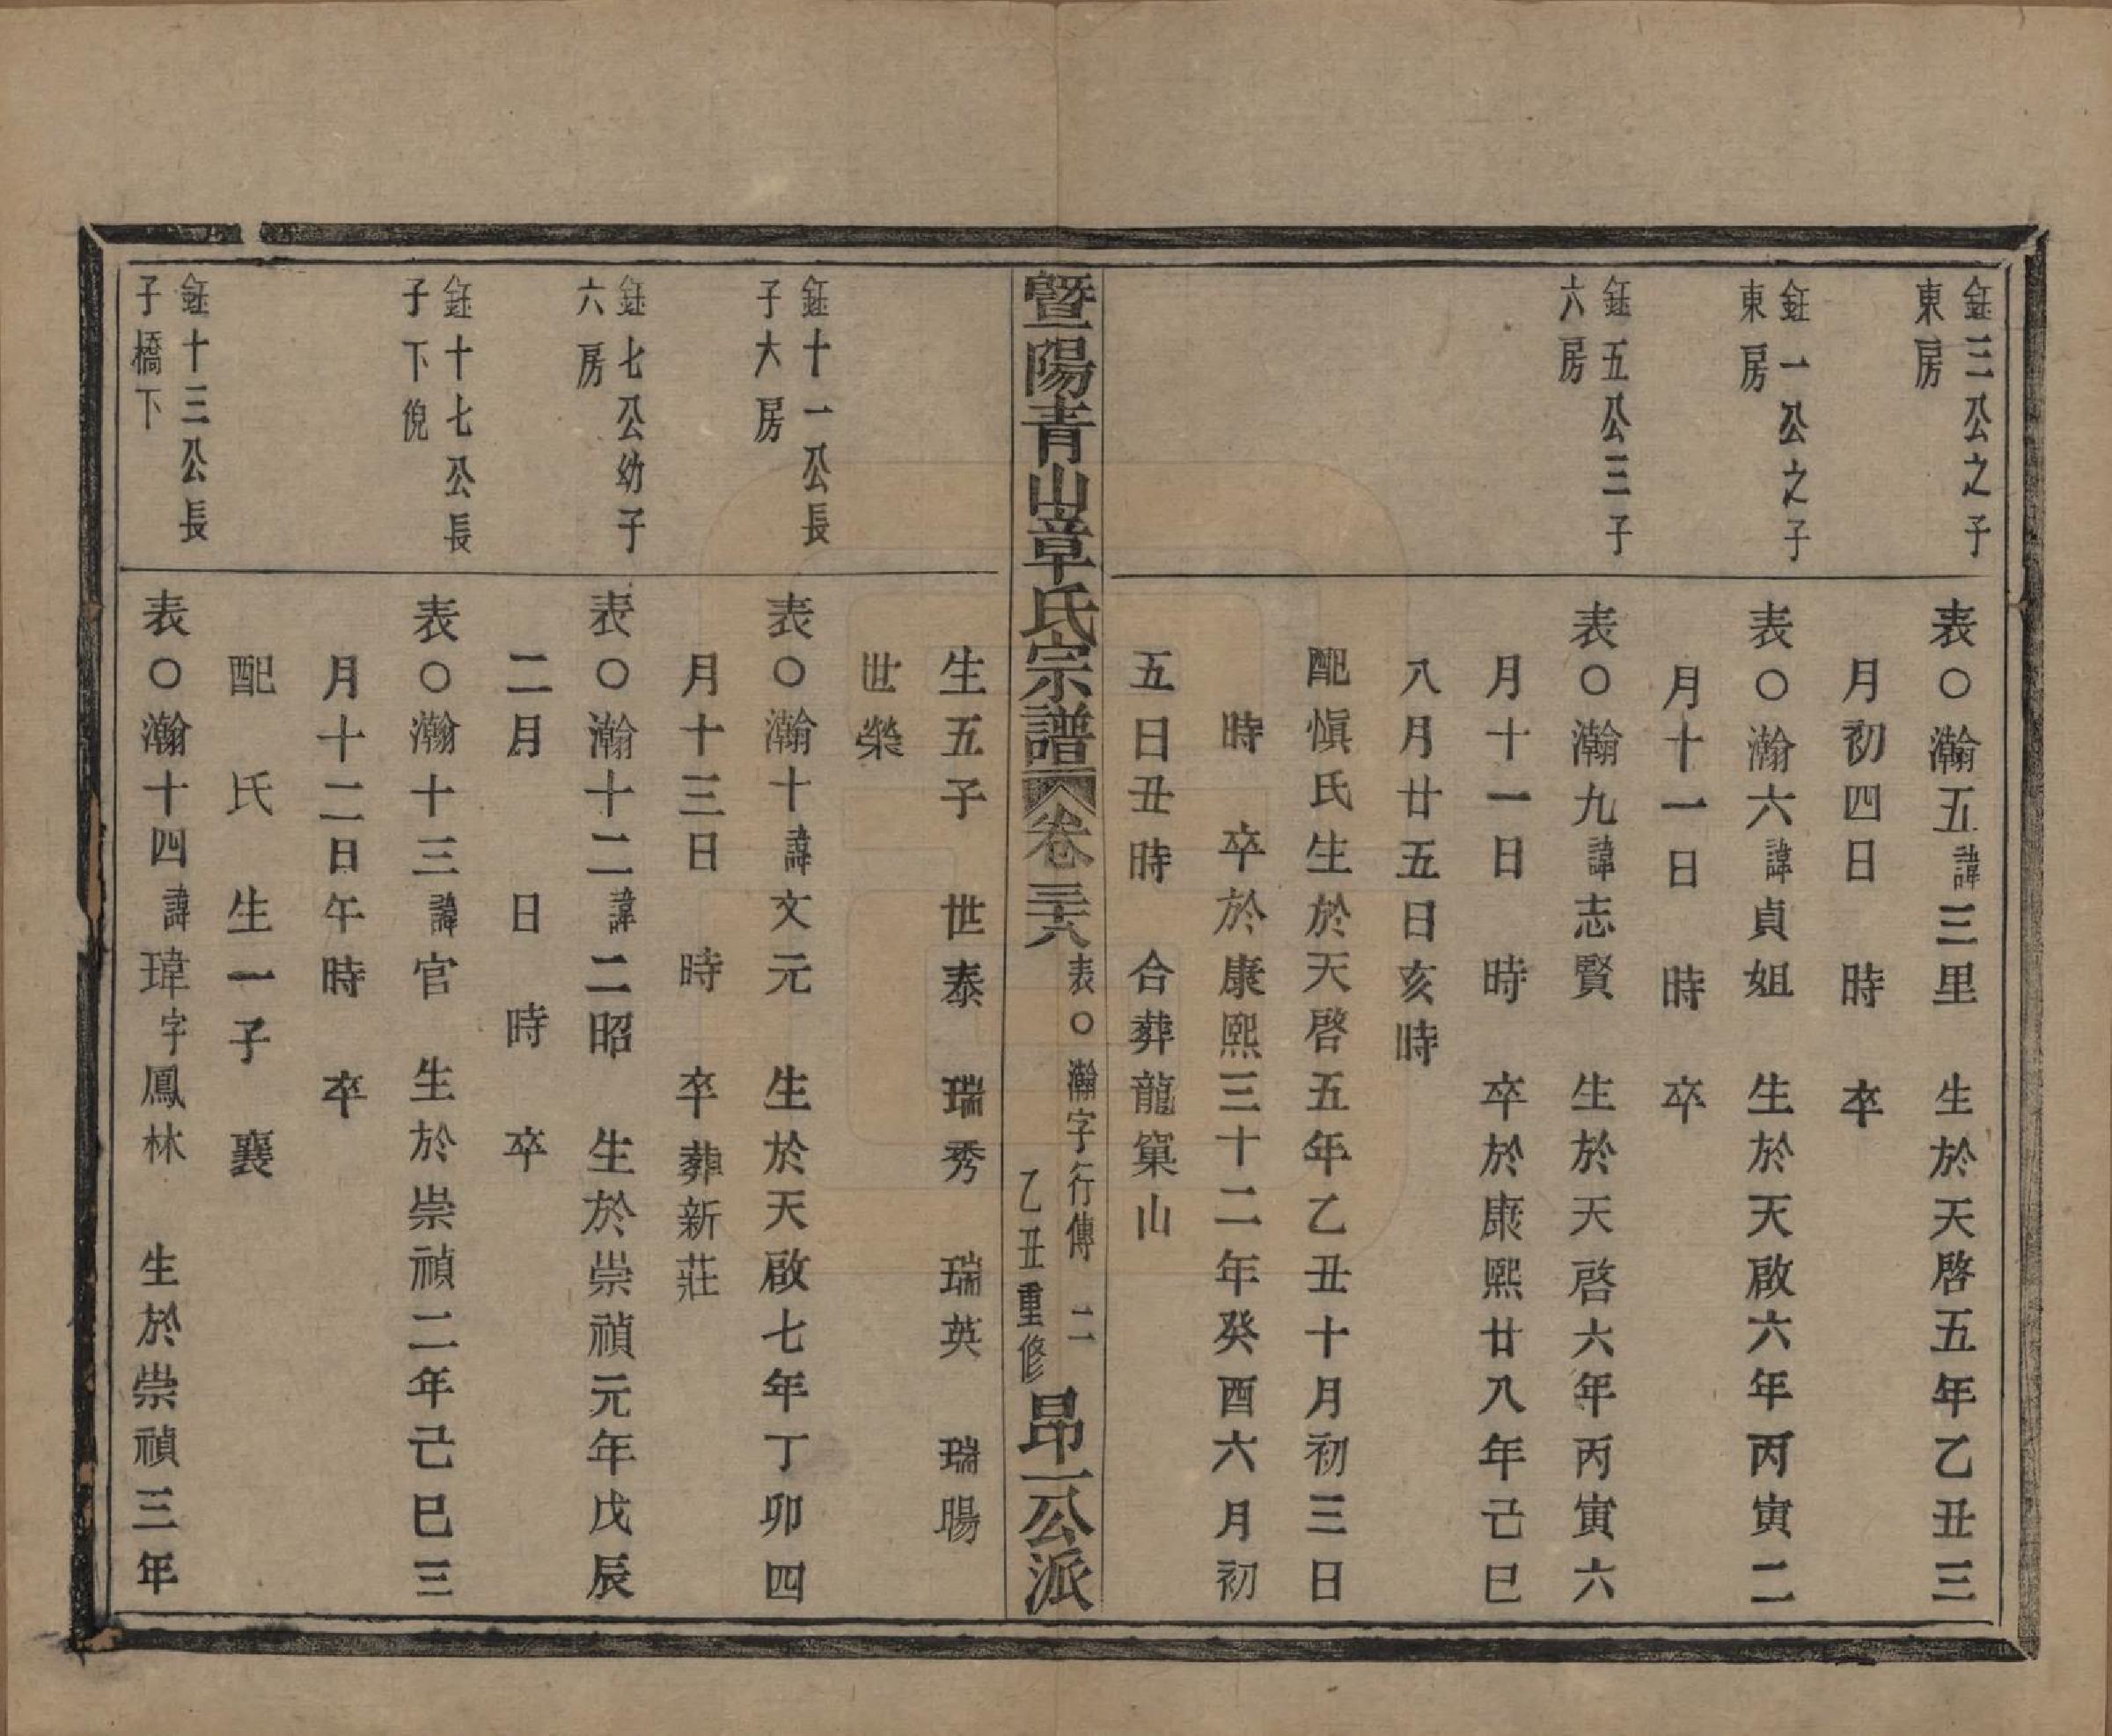 鈺三公之子
東房
表○瀚五諱三里　生於天啓五年乙丑三
月初四日　時　卒
鈺一公之子
東房
表○瀚六諱貞姐　生於天啟六年丙寅二
月十一日　時　卒
鈺五公三子
六房
表○瀚九諱志賢　生於天啓六年丙寅六
月十一日　時　卒於康熙廿八年己巳
八月廿五日亥時
配愼氏生於天啓五年乙丑十月初三日
時　卒於康熙三十二年癸酉六月初
五日丑時　合葬龍窠山
暨陽青山章氏宗譜　卷三十六　表○瀚字行傳　二
乙丑重修
昂一公派
生五子　世泰　瑞秀　瑞英　瑞暘
世榮
鈺十一公長
子大房
表○瀚十諱文元　生於天啟七年丁卯四
月十三日　時　卒葬新莊
鈺七公幼子
六房
表○瀚十二諱二昭　生於崇禎元年戊辰
二月　日　時　卒
鈺十七公長
子下倪
表○瀚十三諱官　生於崇禎二年己巳三
月十二日午時　卒
配　氏　生一子　襄
鈺十三公長
子橋下
表○瀚十四諱瑋字鳳林　生於崇禎三年